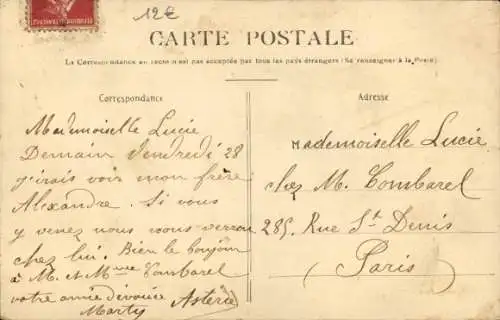 12€
CARTE POSTALE
La Correspondance au recto n'est pas acceptée par tous les pays étrangers (Se renseigner à la Poste)
Correspondance
Mademoiselle Lucie
Demain Vendredi 28
j'irais voir mon frère
Alexandre. Si vous
y venez nous vous verrons
chez lui. Bien le bonjour
à M. et Mme Combarel
votre amie dévouée
Marty Asterie
Adresse
Mademoiselle Lucie
chez M. Combarel
285. Rue St Denis
Paris